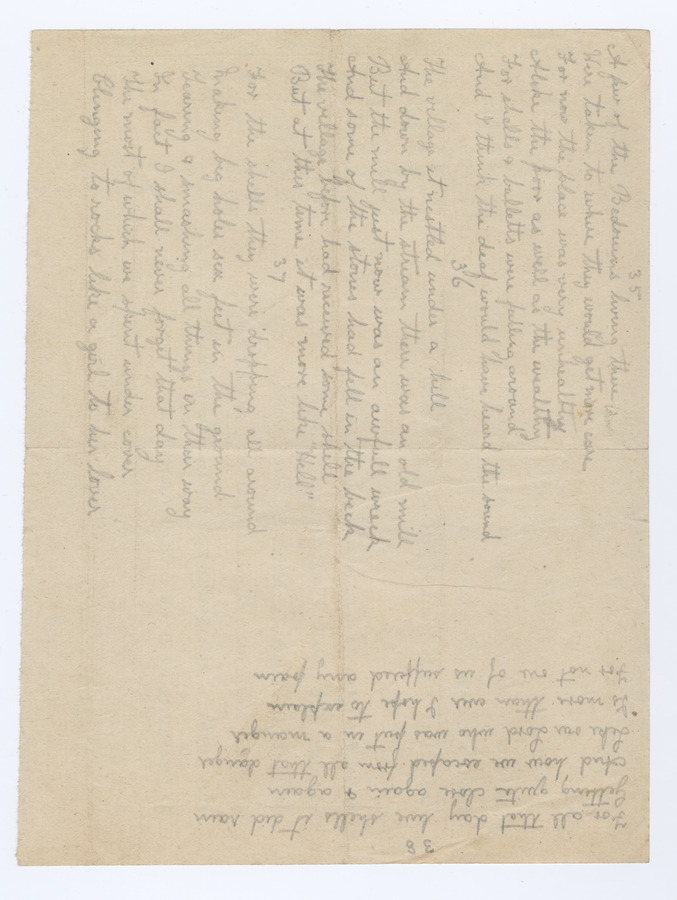 35
A few of the Bedouins living there
Were taken to where they would get more care
For now the place was very unhealthy
Alike the poor as well as the wealthy
For shells & bulletts were falling around
And I think the deaf would have heard the sound
36
The village it nestled under a hill
And down by the stream there was an old mill
But the mill just now was an awfull wreck
And some of the stones had fell in the beck
The village before had received some shell
But at this time it was more like "Hell"
37
For the shells they were dropping all around
Making big holes six feet in the ground
Tearing & smashing all things in their way
In fact I shall never forget that day
The most of which we spent under cover
Clinging to rocks like a girl to her lover
38
For all that day live shells it did rain
Getting quite close again & again
And how we escaped from all that danger
Like our Lord who was put in a manger
Is more than ever I hope to explain
For not one of us suffered any pain